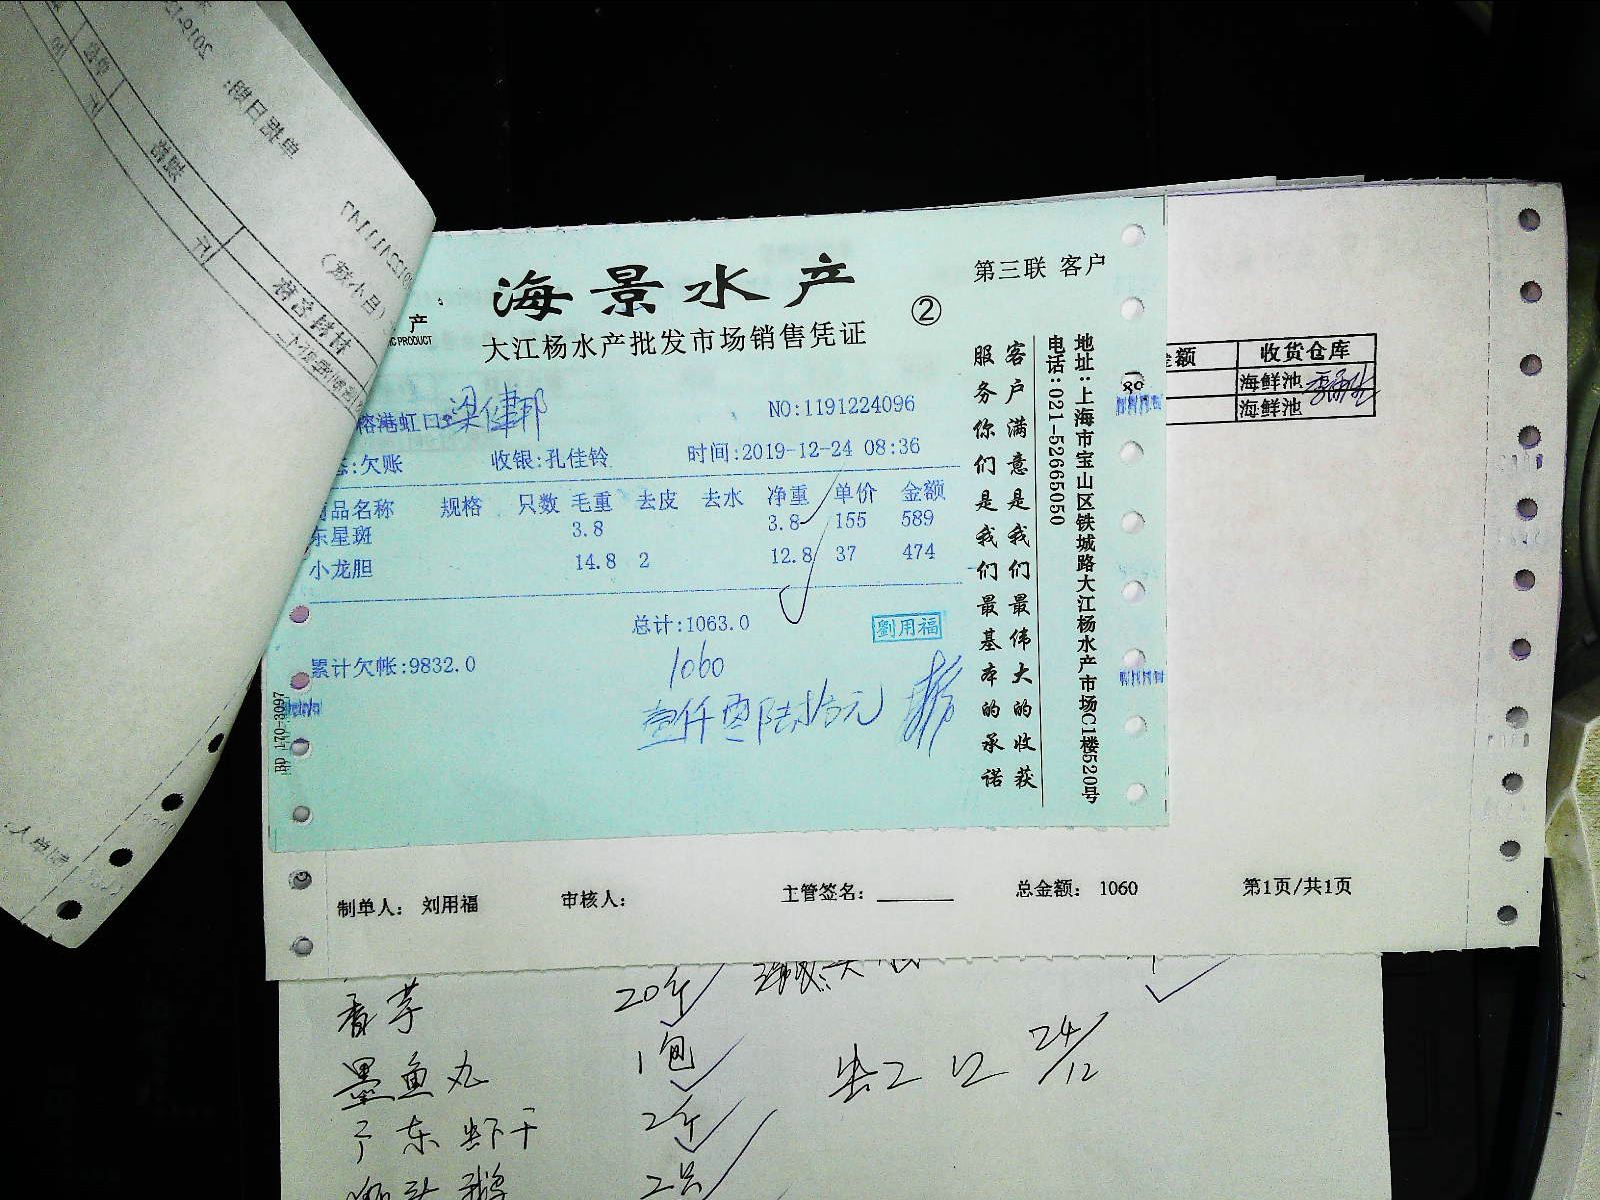 海景水产
大江杨水产批发市场销售凭证
②
第三联 客户
产
PRODUCT
榕港虹口
梁健邦
NO:1191224096
:欠账
收银:孔佳铃
时间:2019-12-24 08:36
品名称 规格 只数 毛重 去皮 去水 净重 单价 金额
东星斑 3.8 3.8 155 589
小龙胆 14.8 2 12.8 37 474
总计:1063.0
劉用福
累计欠帐:9832.0
1060
壹仟零陆拾元
客户满意是我们最伟大的收获
服务你们是我们最基本的承诺
地址:上海市宝山区铁城路大江杨水产市场C1楼520号
电话:021-52665050
BD 170-3097
额 收货仓库
海鲜池
海鲜池
制单人: 刘用福 审核人: 主管签名: 总金额: 1060 第1页/共1页
香芋 20斤
墨鱼丸 1包
广东虾干 2斤
虹口 24/12
2只